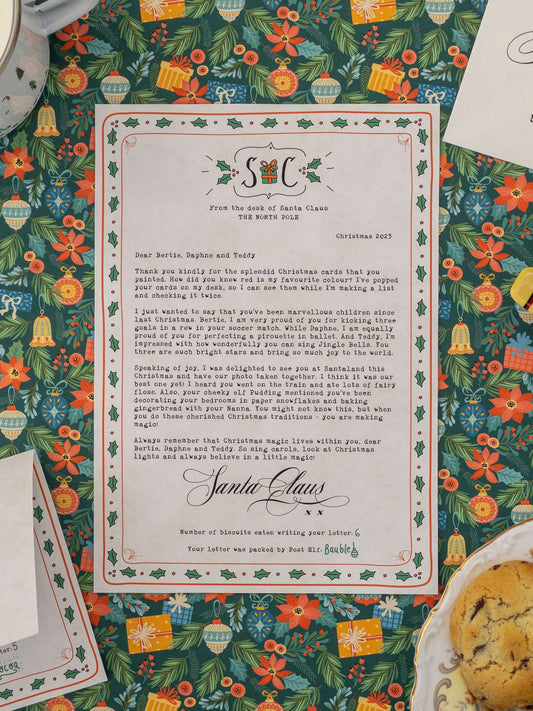 S C
From the desk of Santa Claus
THE NORTH POLE
Christmas 2023
Dear Bertie, Daphne and Teddy
Thank you kindly for the splendid Christmas cards that you
painted. How did you know red is my favourite colour? I've popped
your cards on my desk, so I can see them while I'm making a list
and checking it twice.
I just wanted to say that you've been marvellous children since
last Christmas. Bertie, I am very proud of you for kicking three
goals in a row in your soccer match. While Daphne, I am equally
proud of you for perfecting a pirouette in ballet. And Teddy, I'm
impressed with how wonderfully you can sing Jingle Bells. You
three are such bright stars and bring so much joy to the world.
Speaking of joy, I was delighted to see you at Santaland this
Christmas and have our photo taken together. I think it was our
best one yet! I heard you went on the train and ate lots of fairy
floss. Also, your cheeky elf Pudding mentioned you've been
decorating your bedrooms in paper snowflakes and baking
gingerbread with your Nanna. You might not know this, but when
you do these cherished Christmas traditions - you are making
magic!
Always remember that Christmas magic lives within you, dear
Bertie, Daphne and Teddy. So sing carols, look at Christmas
lights and always believe in a little magic!
Santa Claus
x x
Number of biscuits eaten writing your letter: 6
Your letter was packed by Post Elf: Bauble